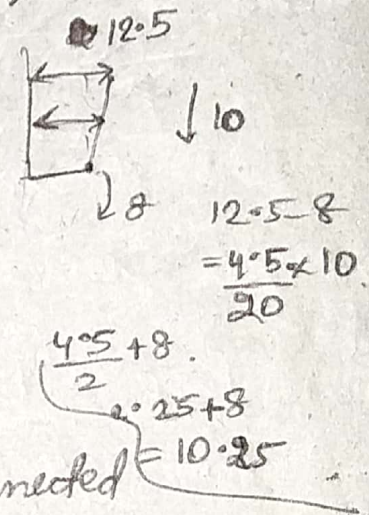 12.5
10
8
12.5-8
= 4.5 × 10
20
4.5 + 8.
2
2.25+8
= 10.25
nected